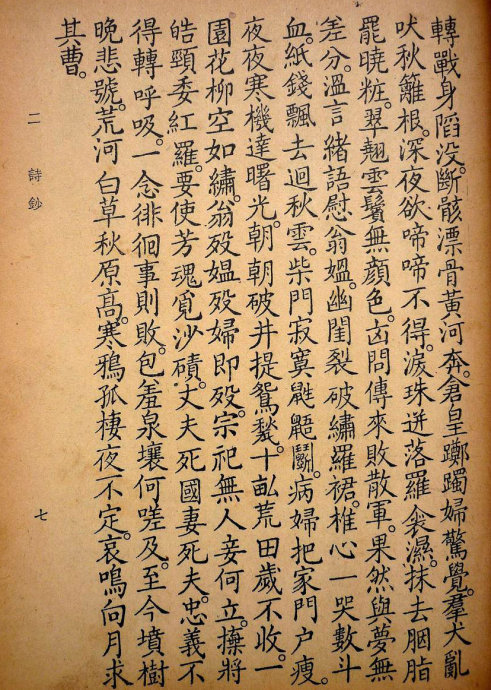 轉戰身陷没。斷骸漂骨黃河奔。倉皇躑躅婦驚覺。羣犬亂
吠秋籬根。深夜欲啼啼不得。淚珠迸落羅衾濕。抹去胭脂
罷曉粧。翠翹雲鬢無顔色。凶問傳來敗散軍。果然與夢無
差分。溫言緒語慰翁媼。幽閨裂破繡羅裙。椎心一哭數斗
血。紙錢飄去迴秋雲。柴門寂寞鼪鼯鬭。病婦把家門户瘦。
夜夜寒機達曙光。朝朝破井提鴛甃。十畝荒田歲不收。一
園花柳空如繡。翁殁媼殁婦即殁。宗祀無人妾何立。將
皓頸委紅羅。要使芳魂覓沙磧。丈夫死國妻死夫。忠義不
得轉呼吸。一念徘徊事則敗。包羞泉壤何嗟及。至今墳樹
晚悲號。荒河白草秋原高。寒鴉孤棲夜不定。哀鳴向月求
其曹。
二 詩鈔 七